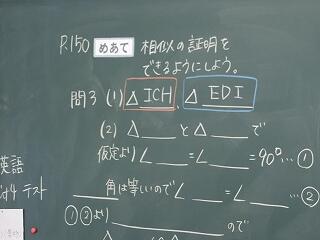 P.150 めあて 相似の証明を
できるようにしよう。
問3 (1) △ICH、△EDI
(2) △____と△____で
仮定より∠____=∠____=90°…①
____角は等しいので∠____=∠____…②
①②より____________ので
英語
テスト